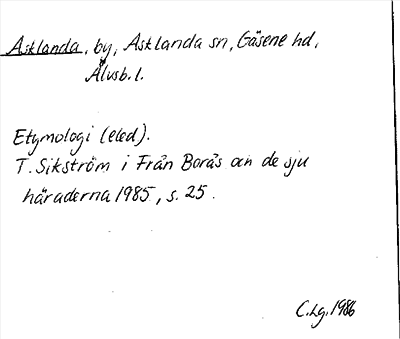 Asklanda, by, Asklanda sn, Gäsene hd,
Älvsb. l.
Etymologi (eled).
T. Sikström i Från Borås och de sju
häraderna 1985, s. 25.
C.Lg. 1986